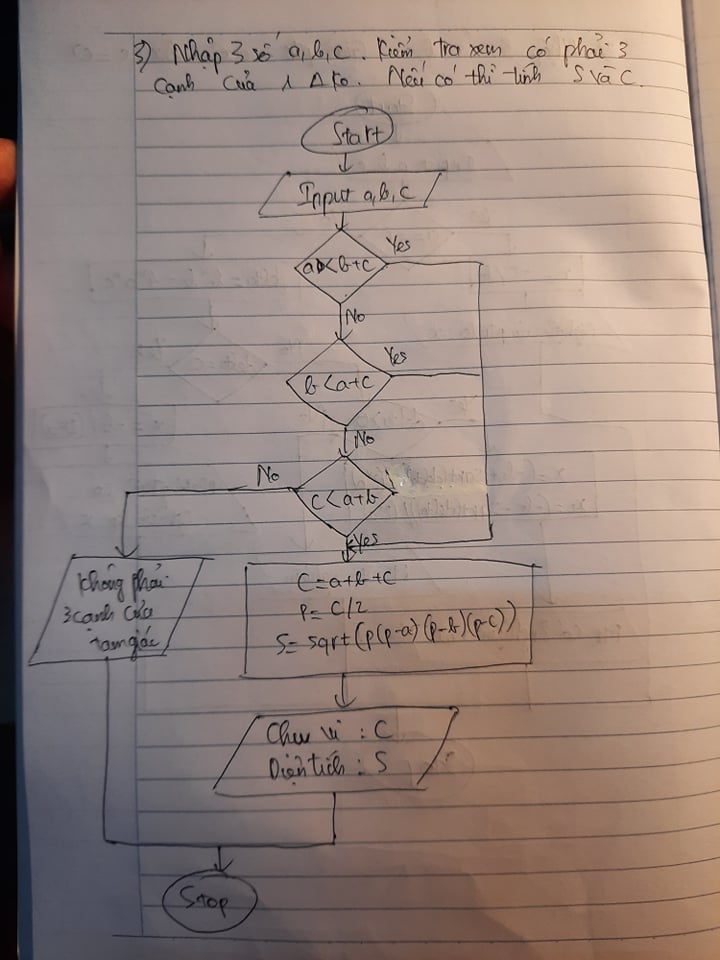 3) Nhập 3 số a, b, c. Kiểm tra xem có phải 3
cạnh của 1 Δ ko. Nếu có thì tính S và C.
Start
Input a, b, c
a < b + c
Yes
No
b < a + c
Yes
No
c < a + b
No
Yes
Không phải
3 cạnh của
tam giác
C = a + b + c
P = C / 2
S = sqrt(p(p-a)(p-b)(p-c))
Chu vi : C
Diện tích : S
Stop